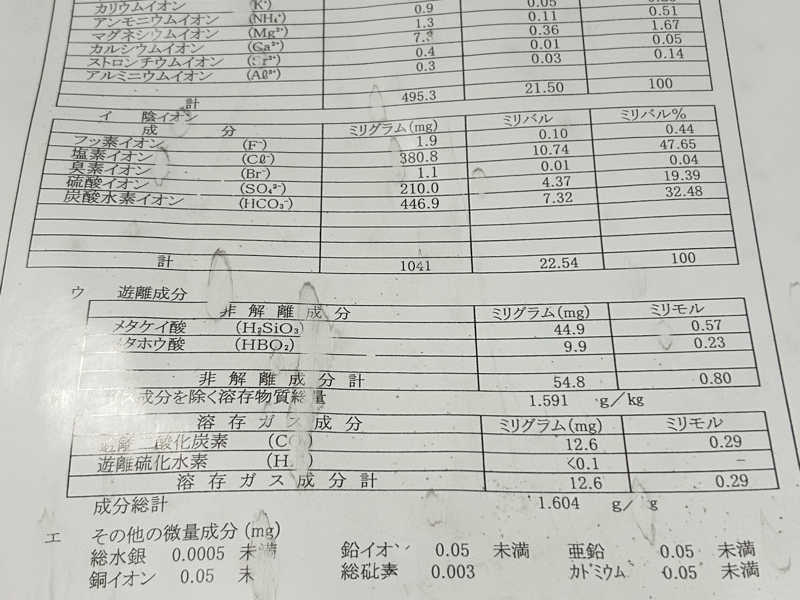 カリウムイオン (K⁺)
アンモニウムイオン (NH₄⁺) 0.9 0.05
マグネシウムイオン (Mg²⁺) 1.3 0.11 0.51
カルシウムイオン (Ca²⁺) 7.3 0.36 1.67
ストロンチウムイオン (Sr²⁺) 0.4 0.01 0.05
アルミニウムイオン (Aℓ³⁺) 0.3 0.03 0.14
計 495.3 21.50 100
イ 陰イオン
成分 ミリグラム(mg) ミリバル ミリバル%
フッ素イオン (F⁻) 1.9 0.10 0.44
塩素イオン (Cℓ⁻) 380.8 10.74 47.65
臭素イオン (Br⁻) 1.1 0.01 0.04
硫酸イオン (SO₄²⁻) 210.0 4.37 19.39
炭酸水素イオン (HCO₃⁻) 446.9 7.32 32.48
計 1041 22.54 100
ウ 遊離成分
非解離成分 ミリグラム(mg) ミリモル
メタケイ酸 (H₂SiO₃) 44.9 0.57
メタホウ酸 (HBO₂) 9.9 0.23
非解離成分計 54.8 0.80
ス成分を除く溶存物質総量 1.591 g/kg
溶存ガス成分 ミリグラム(mg) ミリモル
遊離二酸化炭素 (CO ) 12.6 0.29
遊離硫化水素 (H ) <0.1 －
溶存ガス成分計 12.6 0.29
成分総計 1.604 g/ g
エ その他の微量成分(mg)
総水銀 0.0005 未満 鉛イオン 0.05 未満 亜鉛 0.05 未満
銅イオン 0.05 未 総砒素 0.003 カドミウム 0.05 未満